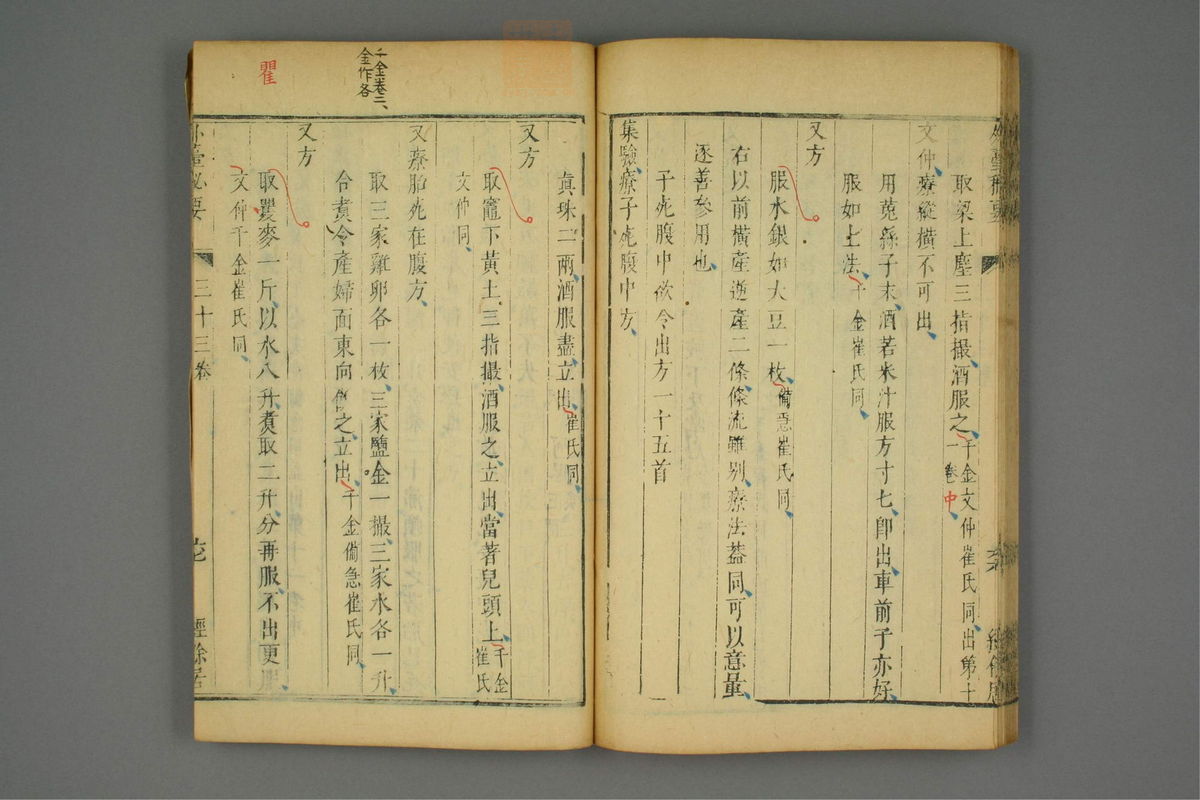 取梁上塵三指撮酒服之千金文仲崔氏同出第十
一卷中
文仲療縱橫不可出
用菟絲子末酒若米汁服方寸匕即出車前子亦好
服如上法千金崔氏同
又方
服水銀如大豆一枚備急崔氏同
右以前橫產逆產二條條流雖別療法蓋同可以意量
逐善參用也
子死腹中欲令出方一十五首
集驗療子死腹中方
真珠二兩酒服盡立出崔氏同
又方
取竈下黃土三指撮酒服之立出當著兒頭上千金
崔氏
文仲同
又療胎死在腹方
千金卷二
金作各
取三家雞卵各一枚三家鹽金一撮三家水各一升
合煮令產婦面東向飲之立出千金備急崔氏同
又方
瞿
取瞿麥一斤以水八升煮取二升分再服不出更服
文仲千金崔氏同
外臺秘要
三十三卷
經餘居